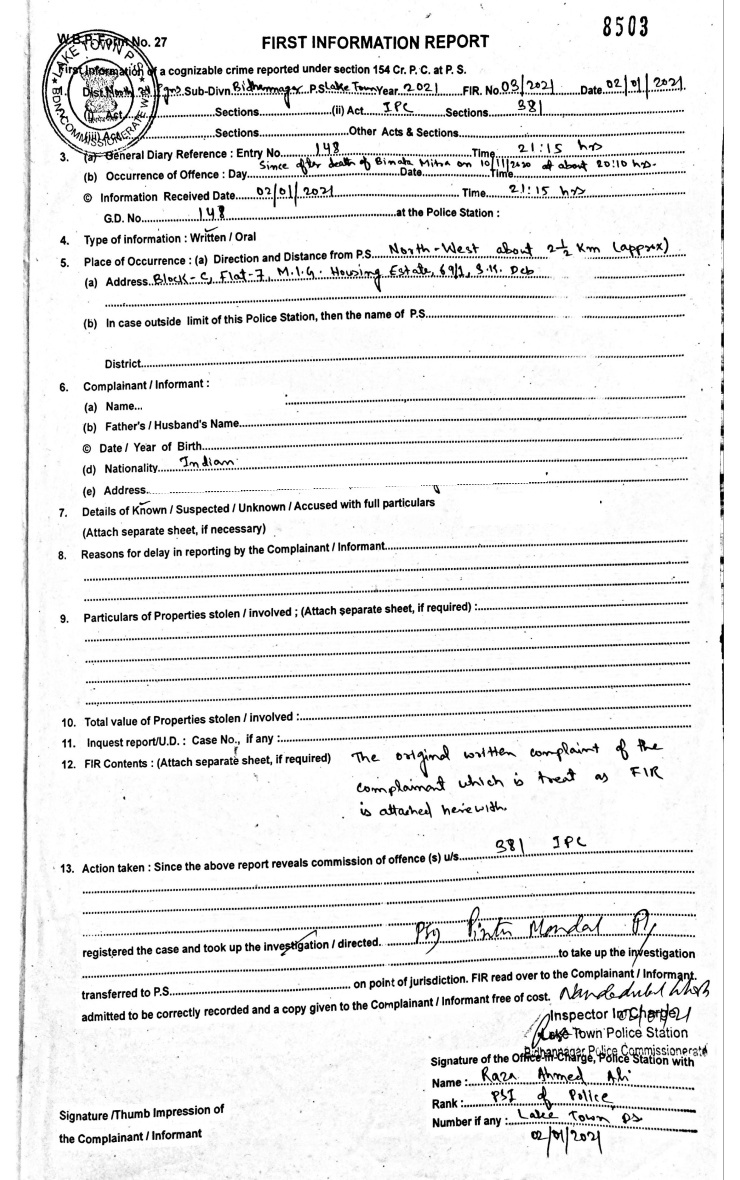 8503
W.B.P. Form No. 27
FIRST INFORMATION REPORT
First Information of a cognizable crime reported under section 154 Cr. P. C. at P. S.
1. Dist. North 24 Pgns. Sub-Divn. Bidhannagar P.S Lake Town Year 2021 FIR. No. 03/2021 Date 02/01/2021
(i) Act Sections (ii) Act IPC Sections 381
(iii) Act Sections Other Acts & Sections
3. (a) General Diary Reference : Entry No. 148 Time 21:15 hrs
(b) Occurrence of Offence : Day Since after death of Binata Mitra on 10/11/2020 at about 20:10 hrs. Date Time
© Information Received Date 02/01/2021 Time 21:15 hrs
G.D. No. 148 at the Police Station :
4. Type of information : Written / Oral
5. Place of Occurrence : (a) Direction and Distance from P.S. North-West about 2½ Km (approx)
(a) Address Block-C, Flat-7, M.I.G. Housing Estate, 69/1, S.K. Deb
(b) In case outside limit of this Police Station, then the name of P.S.
District
6. Complainant / Informant :
(a) Name...
(b) Father's / Husband's Name
© Date / Year of Birth
(d) Nationality Indian
(e) Address
7. Details of Known / Suspected / Unknown / Accused with full particulars
(Attach separate sheet, if necessary)
8. Reasons for delay in reporting by the Complainant / Informant
9. Particulars of Properties stolen / involved ; (Attach separate sheet, if required) :
10. Total value of Properties stolen / involved :
11. Inquest report/U.D. : Case No., if any :
12. FIR Contents : (Attach separate sheet, if required) The original written complaint of the
complainant which is treat as FIR
is attached herewith
13. Action taken : Since the above report reveals commission of offence (s) u/s 381 IPC
registered the case and took up the investigation / directed. PSI Pintu Mondal
to take up the investigation
transferred to P.S. on point of jurisdiction. FIR read over to the Complainant / Informant.
admitted to be correctly recorded and a copy given to the Complainant / Informant free of cost.
Inspector In Charge
Lake Town Police Station
Bidhannagar Police Commissionerate
Signature of the Office-in-Charge, Police Station with
Name : Raza Ahmed Ali
Rank : PSI of Police
Number if any : Lake Town PS
02/01/2021
Signature /Thumb Impression of
the Complainant / Informant